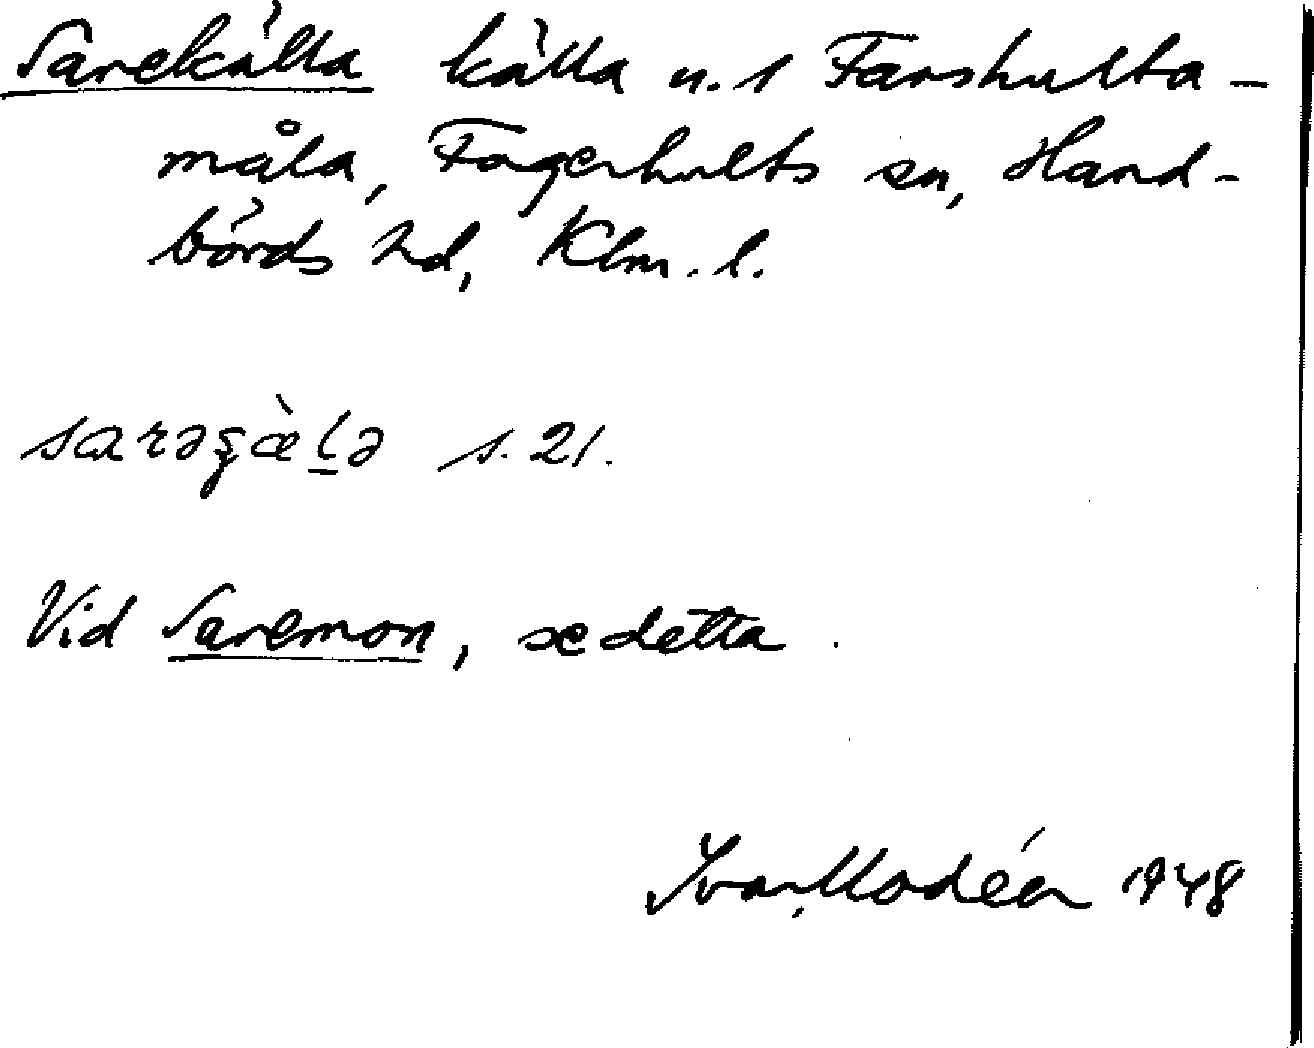 Sarekälla källa n. 1 Farshulta-
måla, Fagerhults sn, Hand-
börds hd, Klm. l.
sarəʂæ̀lə s. 21.
Vid Saremon, se detta.
Ivar Modéer 1948